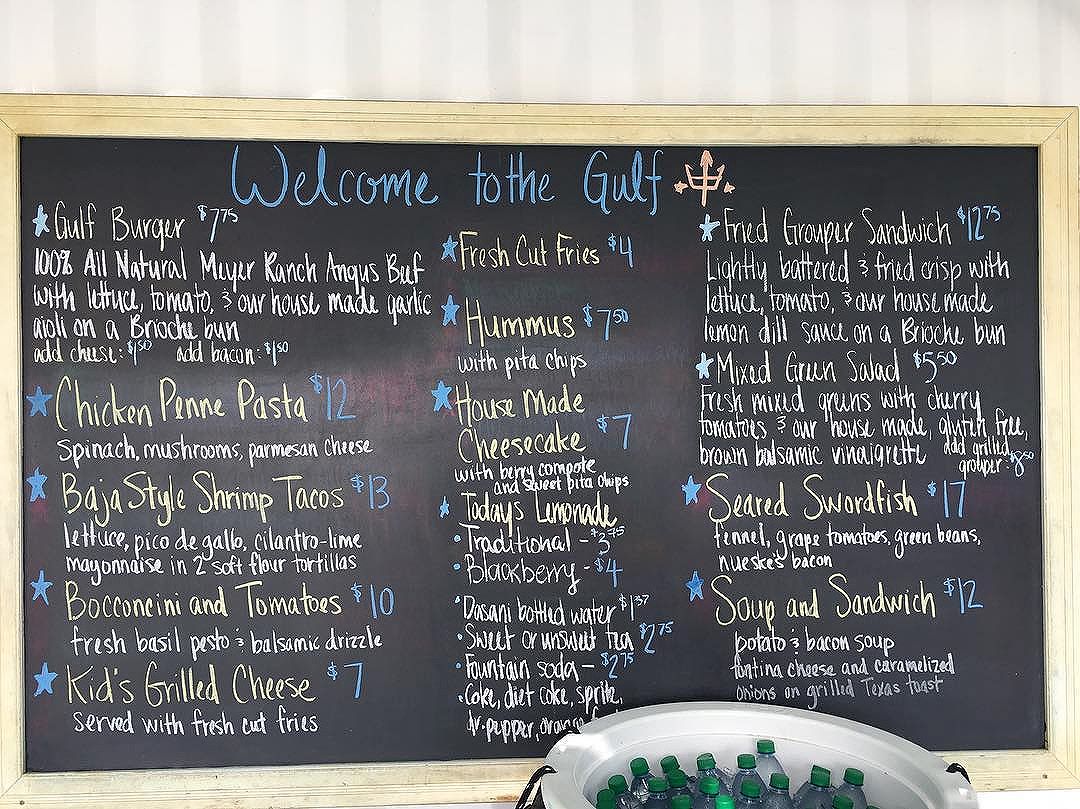 Welcome to the Gulf
Gulf Burger $7.75
100% All Natural Meyer Ranch Angus Beef
with lettuce, tomato, & our house made garlic
aioli on a Brioche bun
add cheese: $1.50 add bacon: $1.50
Chicken Penne Pasta $12
Spinach, mushrooms, parmesan cheese
Baja Style Shrimp Tacos $13
lettuce, pico de gallo, cilantro-lime
mayonnaise in 2 soft flour tortillas
Bocconcini and Tomatoes $10
fresh basil pesto & balsamic drizzle
Kid's Grilled Cheese $7
served with fresh cut fries
Fresh Cut Fries $4
Hummus $7.50
with pita chips
House Made
Cheesecake $7
with berry compote
and sweet pita chips
Today's Lemonade
• Traditional - $3.75
• Blackberry - $4
• Dasani bottled water $1.37
• Sweet or unsweet tea $2.75
• Fountain soda - $2.75
• Coke, diet coke, sprite,
dr. pepper, orange
Fried Grouper Sandwich $12.75
Lightly battered & fried crisp with
lettuce, tomato, & our house made
lemon dill sauce on a Brioche bun
Mixed Green Salad $5.50
Fresh mixed greens with cherry
tomatoes & our house made, gluten free,
brown balsamic vinaigrette add grilled
grouper: $8.50
Seared Swordfish $17
fennel, grape tomatoes, green beans,
nueske's bacon
Soup and Sandwich $12
potato & bacon soup
fontina cheese and caramelized
onions on grilled Texas toast